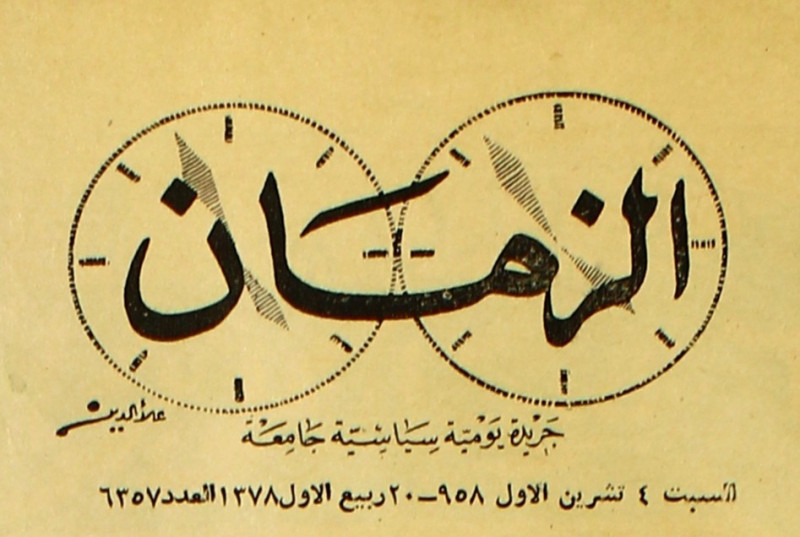 الزمان
علاءالدين
جريدة يومية سياسية جامعة
السبت ٤ تشرين الاول ٩٥٨-٢٠ ربيع الاول ١٣٧٨ العدد ٦٣٥٧